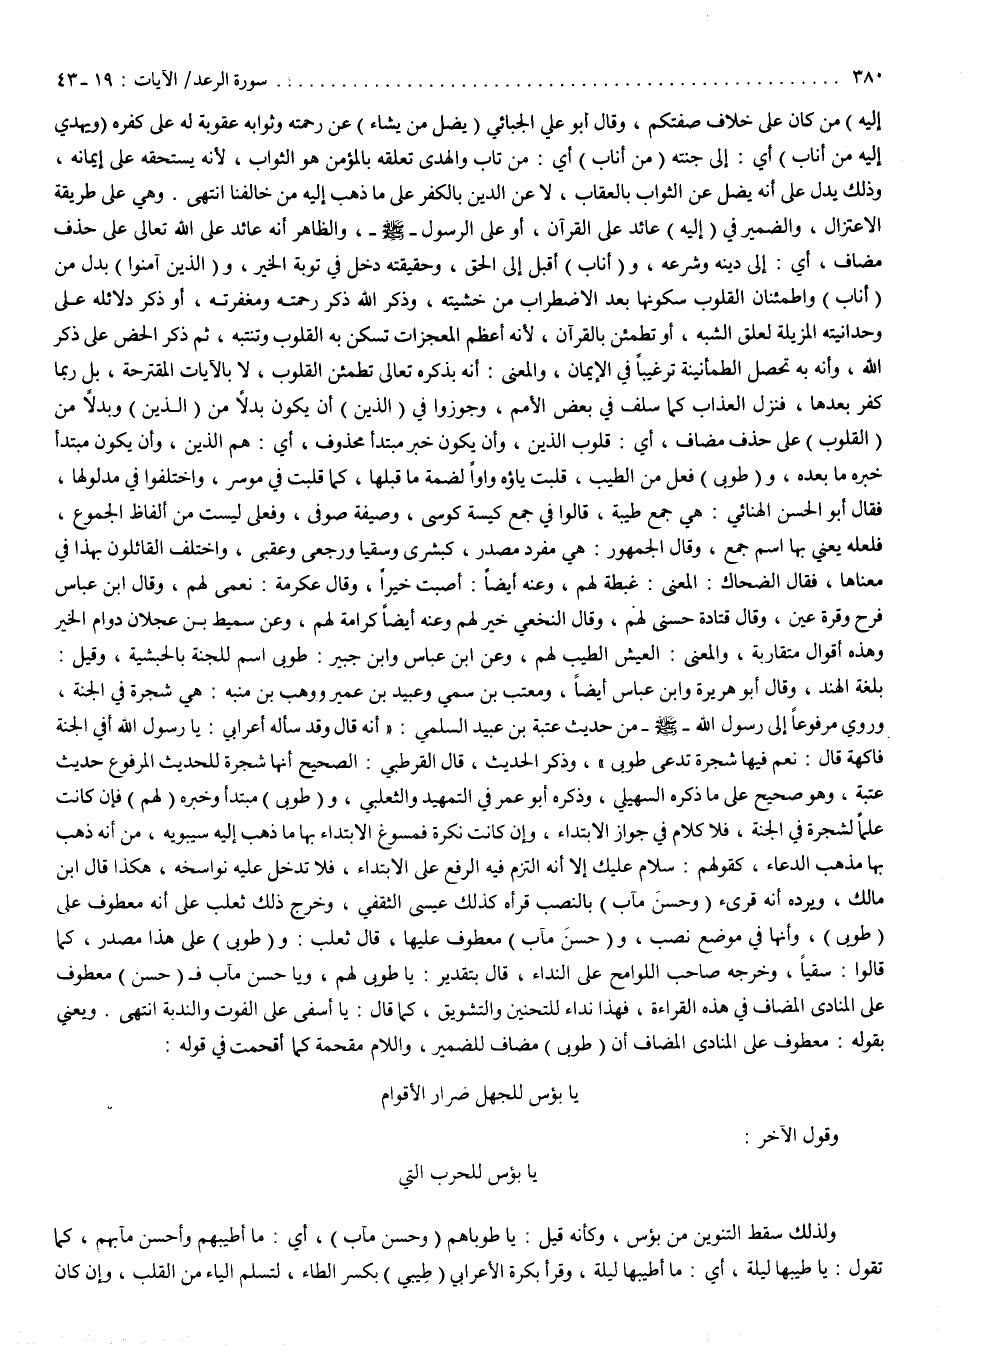 ٣٨٠ . . . . . . . . . . . . . . . . . . . . . . . . . . . . . . . . . . . . . . . . سورة الرعد/ الآيات : ١٩ ـ ٤٣
إليه ) من كان على خلاف صفتكم ، وقال أبو علي الجبائي ( يضل من يشاء ) عن رحمته وثوابه عقوبة له على كفره (ويهدي
إليه من أناب ) أي : إلى جنته ( من أناب ) أي : من تاب والهدى تعلقه بالمؤمن هو الثواب ، لأنه يستحقه على إيمانه ،
وذلك يدل على أنه يضل عن الثواب بالعقاب ، لا عن الدين بالكفر على ما ذهب إليه من خالفنا انتهى . وهي على طريقة
الاعتزال ، والضمير في ( إليه ) عائد على القرآن ، أو على الرسول ـ ﷺ ـ ، والظاهر أنه عائد على الله تعالى على حذف
مضاف ، أي : إلى دينه وشرعه ، و( أناب ) أقبل إلى الحق ، وحقيقته دخل في توبة الخير ، و( الذين آمنوا ) بدل من
( أناب ) واطمئنان القلوب سكونها بعد الاضطراب من خشيته ، وذكر الله ذكر رحمته ومغفرته ، أو ذكر دلائله على
وحدانيته المزيلة لعلق الشبه ، أو تطمئن بالقرآن ، لأنه أعظم المعجزات تسكن به القلوب وتنتبه ، ثم ذكر الحض على ذكر
الله ، وأنه به تحصل الطمأنينة ترغيباً في الإيمان ، والمعنى : أنه بذكره تعالى تطمئن القلوب ، لا بالآيات المقترحة ، بل ربما
كفر بعدها ، فنزل العذاب كما سلف في بعض الأمم ، وجوزوا في ( الذين ) أن يكون بدلاً من ( الذين ) وبدلاً من
( القلوب ) على حذف مضاف ، أي : قلوب الذين ، وأن يكون خبر مبتدأ محذوف ، أي : هم الذين ، وأن يكون مبتدأ
خبره ما بعده ، و( طوبى ) فعل من الطيب ، قلبت ياؤه واواً لضمة ما قبلها ، كما قلبت في موسر ، واختلفوا في مدلولها ،
فقال أبو الحسن الهنائي : هي جمع طيبة ، قالوا في جمع كيسة كوسى ، وصيفة صوفى ، وفعلى ليست من ألفاظ الجموع ،
فلعله يعني بها اسم جمع ، وقال الجمهور : هي مفرد مصدر ، كبشرى وسقيا ورجعى وعقبى ، واختلف القائلون بهذا في
معناها ، فقال الضحاك : المعنى : غبطة لهم ، وعنه أيضاً : أصبت خيراً ، وقال عكرمة : نعمى لهم ، وقال ابن عباس
فرح وقرة عين ، وقال قتادة حسنى لهم ، وقال النخعي خير لهم وعنه أيضاً كرامة لهم ، وعن سميط بن عجلان دوام الخير
وهذه أقوال متقاربة ، والمعنى : العيش الطيب لهم ، وعن ابن عباس وابن جبير : طوبى اسم للجنة بالحبشية ، وقيل :
بلغة الهند ، وقال أبو هريرة وابن عباس أيضاً ، ومعتب بن سمي وعبيد بن عمير ووهب بن منبه : هي شجرة في الجنة ،
وروي مرفوعاً إلى رسول الله ـ ﷺ ـ من حديث عتبة بن عبيد السلمي : « أنه قال وقد سأله أعرابي : يا رسول الله أفي الجنة
فاكهة قال : نعم فيها شجرة تدعى طوبى » ، وذكر الحديث ، قال القرطبي : الصحيح أنها شجرة للحديث المرفوع حديث
عتبة ، وهو صحيح على ما ذكره السهيلي ، وذكره أبو عمر في التمهيد والثعلبي ، و( طوبى ) مبتدأ وخبره ( لهم ) فإن كانت
علماً لشجرة في الجنة ، فلا كلام في جواز الابتداء ، وإن كانت نكرة فمسوغ الابتداء بها ما ذهب إليه سيبويه ، من أنه ذهب
بها مذهب الدعاء ، كقولهم : سلام عليك إلا أنه التزم فيه الرفع على الابتداء ، فلا تدخل عليه نواسخه ، هكذا قال ابن
مالك ، ويرده أنه قرىء ( وحسنَ مآب ) بالنصب قرأه كذلك عيسى الثقفي ، وخرج ذلك ثعلب على أنه معطوف على
( طوبى ) ، وأنها في موضع نصب ، و( حسنَ مآب ) معطوف عليها ، قال ثعلب : و( طوبى ) على هذا مصدر ، كما
قالوا : سقياً ، وخرجه صاحب اللوامح على النداء ، قال بتقدير : يا طوبى لهم ، ويا حسن مآب فـ ( حسن ) معطوف
على المنادى المضاف في هذه القراءة ، فهذا نداء للتحنين والتشويق ، كما قال : يا أسفى على الفوت والندبة انتهى . ويعني
بقوله : معطوف على المنادى المضاف أن ( طوبى ) مضاف للضمير ، واللام مقحمة كما أقحمت في قوله :
يا بؤس للجهل ضرار الأقوام
وقول الآخر :
يا بؤس للحرب التي
ولذلك سقط التنوين من بؤس ، وكأنه قيل : يا طوباهم ( وحسن مآب ) ، أي : ما أطيبهم وأحسن مآبهم ، كما
تقول : يا طيبها ليلة ، أي : ما أطيبها ليلة ، وقرأ بكرة الأعرابي ( طِيبي ) بكسر الطاء ، لتسلم الياء من القلب ، وإن كان